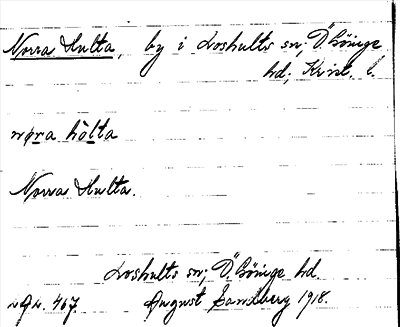 Norra Hulta, by i Loshults sn; Ö. Göinge
hd; Krist. l.
nǫra hòlta
Norra Hulta.
Loshults sn; Ö. Göinge hd.
467. August Sandberg 1918.